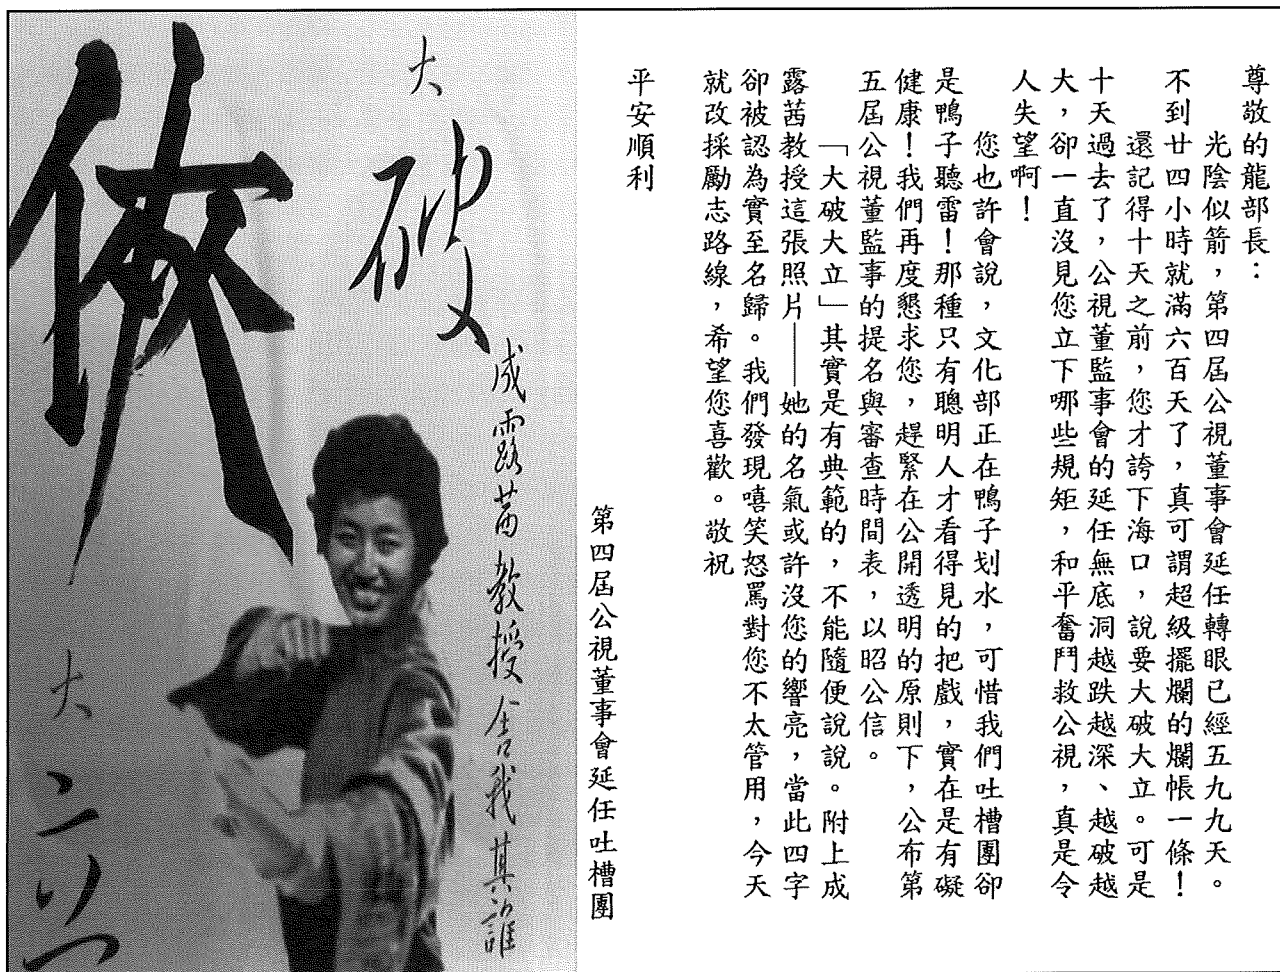 尊敬的龍部長：
光陰似箭，第四屆公視董事會延任轉眼已經五九九天。
不到廿四小時就滿六百天了，真可謂超級擺爛的爛帳一條！
還記得十天之前，您才誇下海口，說要大破大立。可是
十天過去了，公視董監事會的延任無底洞越跌越深、越破越
大，卻一直沒見您立下哪些規矩，和平奮鬥救公視，真是令
人失望啊！
您也許會說，文化部正在鴨子划水，可惜我們吐槽團卻
是鴨子聽雷！那種只有聰明人才看得見的把戲，實在是有礙
健康！我們再度懇求您，趕緊在公開透明的原則下，公布第
五屆公視董監事的提名與審查時間表，以昭公信。
「大破大立」其實是有典範的，不能隨便說說。附上成
露茜教授這張照片——她的名氣或許沒您的響亮，當此四字
卻被認為實至名歸。我們發現嘻笑怒罵對您不太管用，今天
就改採勵志路線，希望您喜歡。敬祝
平安順利
第四屆公視董事會延任吐槽團
成露茜教授舍我其誰
大破
俠
大立